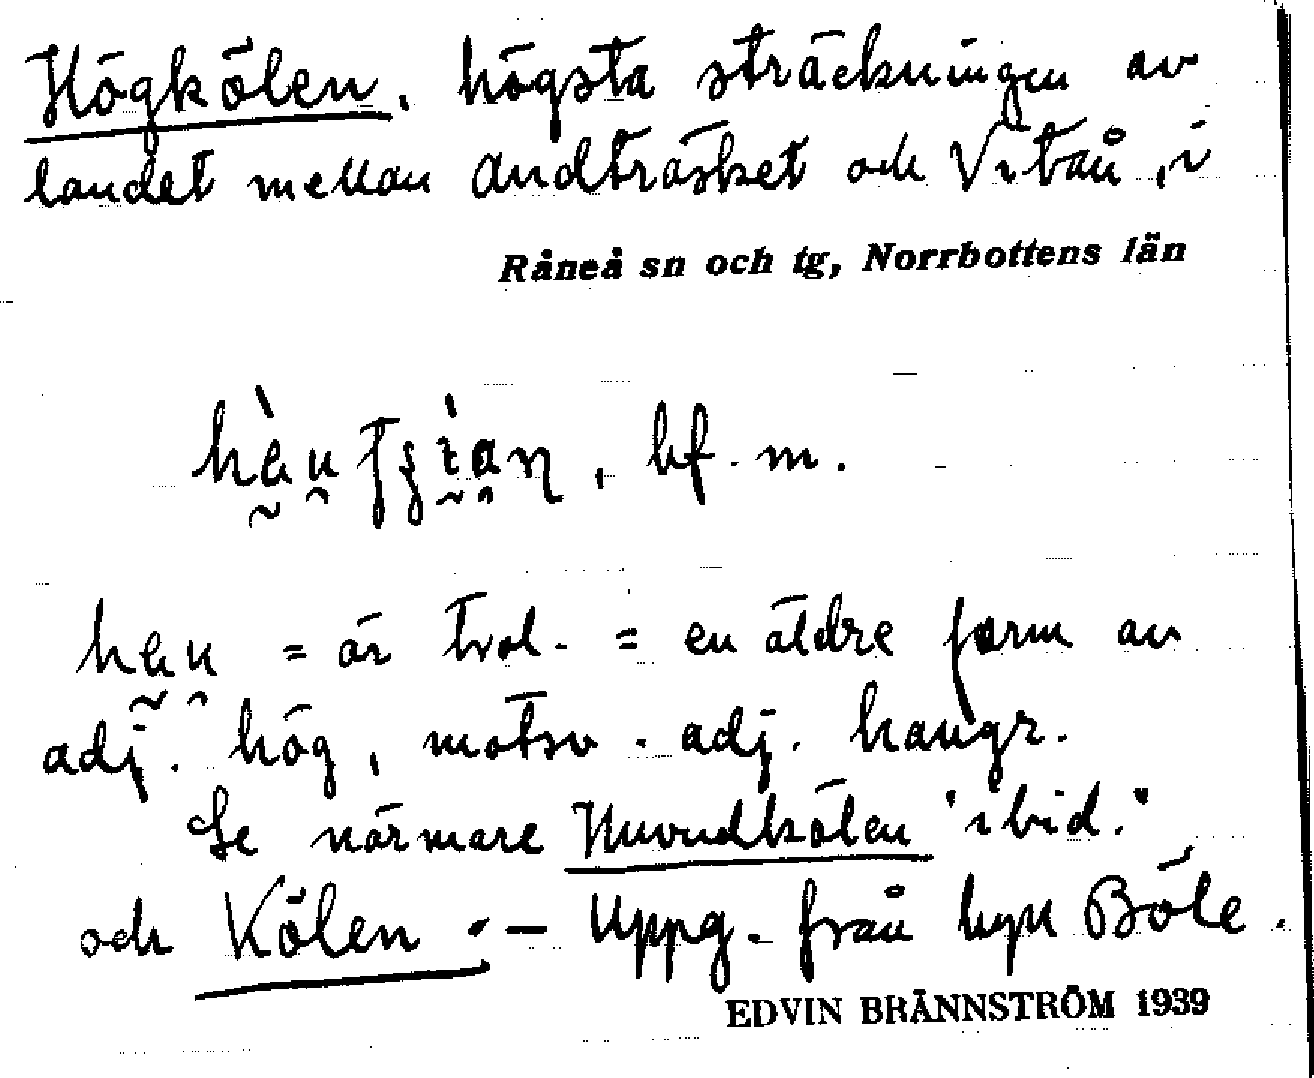 Högkölen, högsta sträckningen av
landet mellan Andträsket och Vitån, i
Råneå sn och tg, Norrbottens län
bf. m.
= är trol. = en äldre form av
adj. hög, motsv. adj. haugr.
Se närmare Huvudkölen "ibid."
och Kölen. — Uppg. från byn Böle.
EDVIN BRÄNNSTRÖM 1939